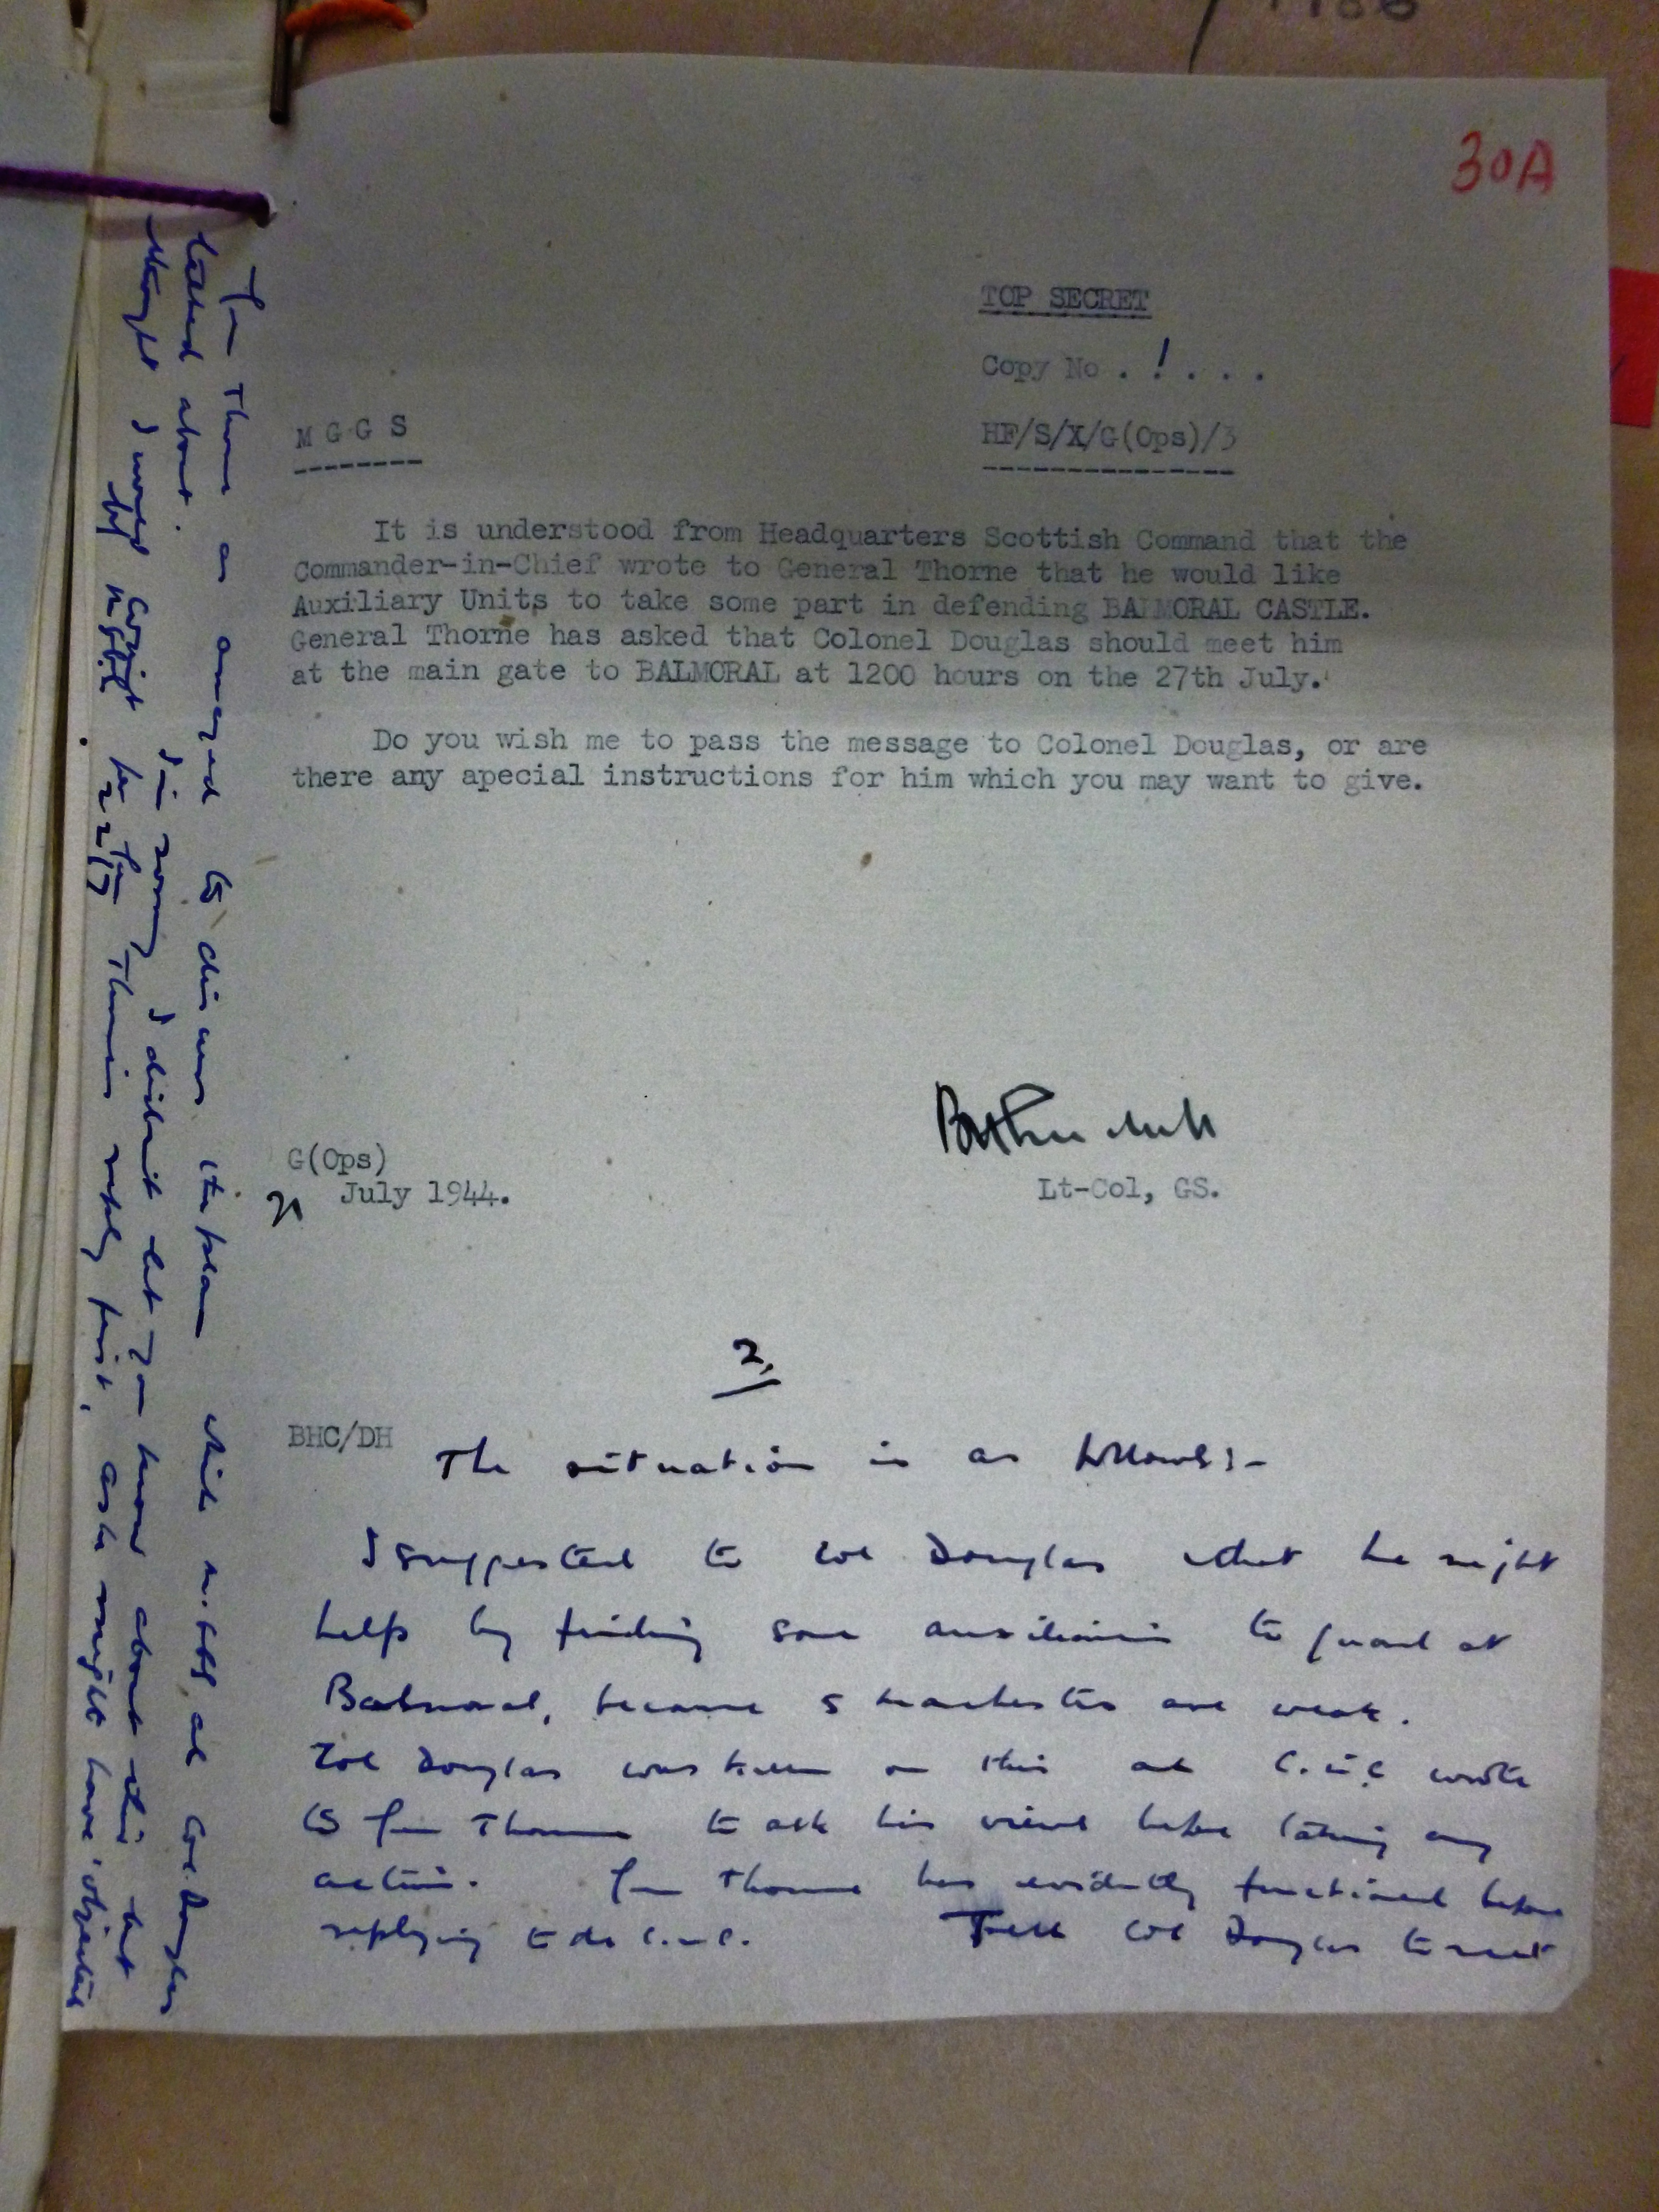 30A
TOP SECRET
Copy No . 1 . . . .
M G G S
HF/S/X/G(Ops)/3
It is understood from Headquarters Scottish Command that the
Commander-in-Chief wrote to General Thorne that he would like
Auxiliary Units to take some part in defending BALMORAL CASTLE.
General Thorne has asked that Colonel Douglas should meet him
at the main gate to BALMORAL at 1200 hours on the 27th July.
Do you wish me to pass the message to Colonel Douglas, or are
there any apecial instructions for him which you may want to give.
Lt-Col, GS.
G(Ops)
July 1944.
2.
BHC/DH
The situation is as follows:-
I suggested to Col Douglas that he might
help by finding some auxiliaries to guard at
Balmoral, because are weak.
Col Douglas was keen on this and C.inC wrote
to Gen Thorne to ask his views before taking any
action. Gen Thorne has evidently functioned before
replying to the C.inC. Tell Col Douglas to meet
Gen Thorne as arranged to discuss the plan which and Col. Douglas
talked about. I'm sorry I didn't let you know about this but
thought I would await Gen Thorne's reply first, as he might have objected